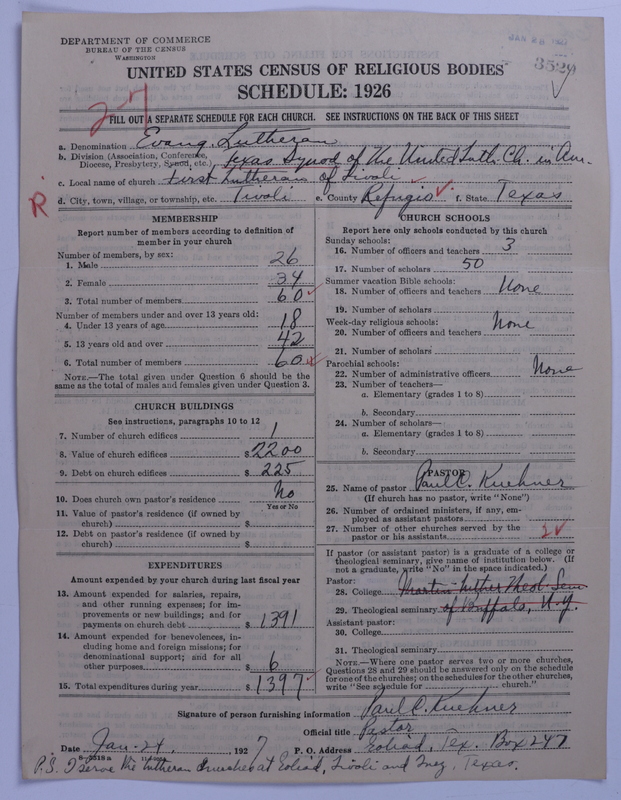 DEPARTMENT OF COMMERCE
BUREAU OF THE CENSUS
WASHINGTON
3529
UNITED STATES CENSUS OF RELIGIOUS BODIES
SCHEDULE: 1926
27
FILL OUT A SEPARATE SCHEDULE FOR EACH CHURCH. SEE INSTRUCTIONS ON THE BACK OF THIS SHEET
a. Denomination Evang. Lutheran
b. Division (Association, Conference, Diocese, Presbytery, Synod, etc.) Texas Synod of the United Luth. Ch. in Am.
c. Local name of church First Lutheran of Tivoli
R
d. City, town, village, or township, etc. Tivoli e. County Refugio f. State Texas
MEMBERSHIP
Report number of members according to definition of
member in your church
Number of members, by sex:
1. Male 26
2. Female 34
3. Total number of members 60
Number of members under and over 13 years old:
4. Under 13 years of age 18
5. 13 years old and over 42
6. Total number of members 60
NOTE.—The total given under Question 6 should be the
same as the total of males and females given under Question 3.
CHURCH BUILDINGS
See instructions, paragraphs 10 to 12
7. Number of church edifices 1
8. Value of church edifices $ 2200
9. Debt on church edifices $ 225
10. Does church own pastor's residence No
Yes or No
11. Value of pastor's residence (if owned by
church) $
12. Debt on pastor's residence (if owned by
church) $
EXPENDITURES
Amount expended by your church during last fiscal year
13. Amount expended for salaries, repairs,
and other running expenses; for im-
provements or new buildings; and for
payments on church debt $ 1391
14. Amount expended for benevolences, in-
cluding home and foreign missions; for
denominational support; and for all
other purposes $ 6
15. Total expenditures during year $ 1397
CHURCH SCHOOLS
Report here only schools conducted by this church
Sunday schools:
16. Number of officers and teachers 3
17. Number of scholars 50
Summer vacation Bible schools:
18. Number of officers and teachers None
19. Number of scholars
Week-day religious schools:
20. Number of officers and teachers None
21. Number of scholars
Parochial schools:
22. Number of administrative officers None
23. Number of teachers—
a. Elementary (grades 1 to 8)
b. Secondary
24. Number of scholars—
a. Elementary (grades 1 to 8)
b. Secondary
PASTOR
25. Name of pastor Paul C. Kuehner
(If church has no pastor, write "None")
26. Number of ordained ministers, if any, em-
ployed as assistant pastors
27. Number of other churches served by the
pastor or his assistants 2
If pastor (or assistant pastor) is a graduate of a college or
theological seminary, give name of institution below. (If
not a graduate, write "No" in the space indicated.)
Pastor:
28. College Martin Luther Theol. Sem
29. Theological seminary of Buffalo, N.Y.
Assistant pastor:
30. College
31. Theological seminary
NOTE.—Where one pastor serves two or more churches,
Questions 28 and 29 should be answered only on the schedule
for one of the churches; on the schedules for the other churches,
write "See schedule for church."
Signature of person furnishing information Paul C. Kuehner
Official title Pastor
Date Jan. 24, 1927 P. O. Address Goliad, Tex. Box 247
P.S. I serve the Lutheran Churches at Goliad, Tivoli and Inez, Texas.